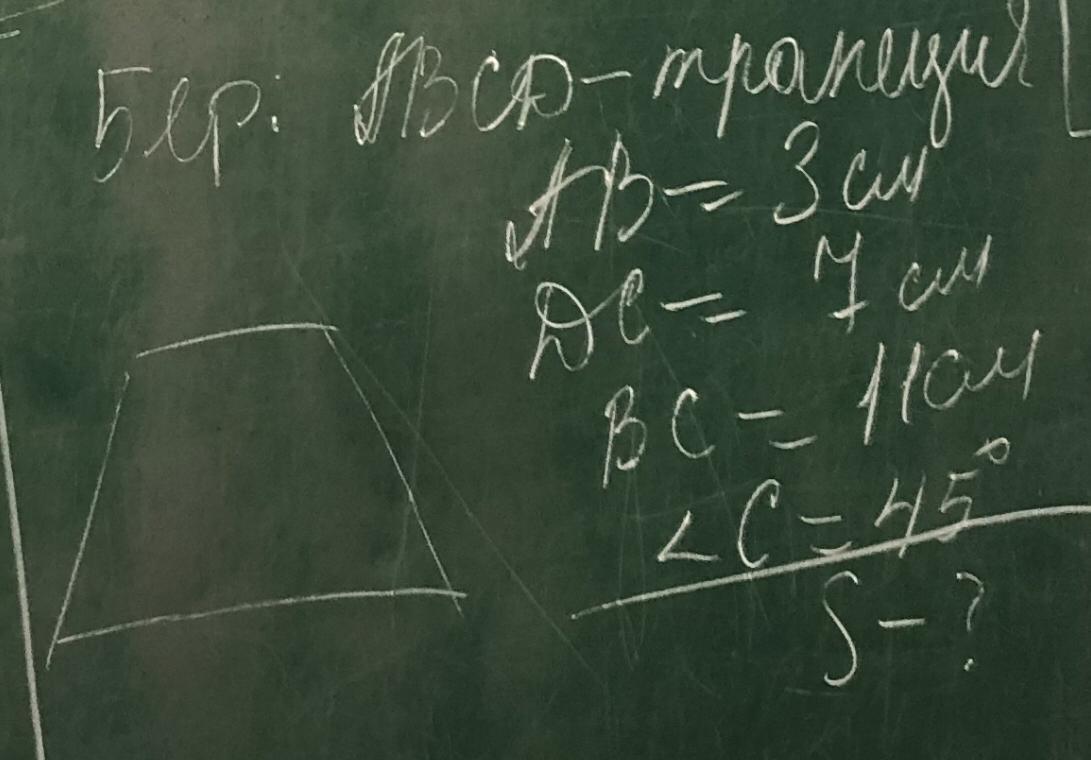 Бер: ABCD - трапеция
AB = 3 см
DC = 7 см
BC = 11 см
∠C = 45°
S - ?